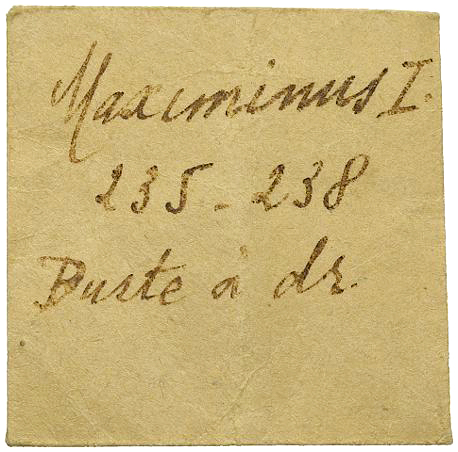 Maximinus I.
235 - 238
Buste à dr.